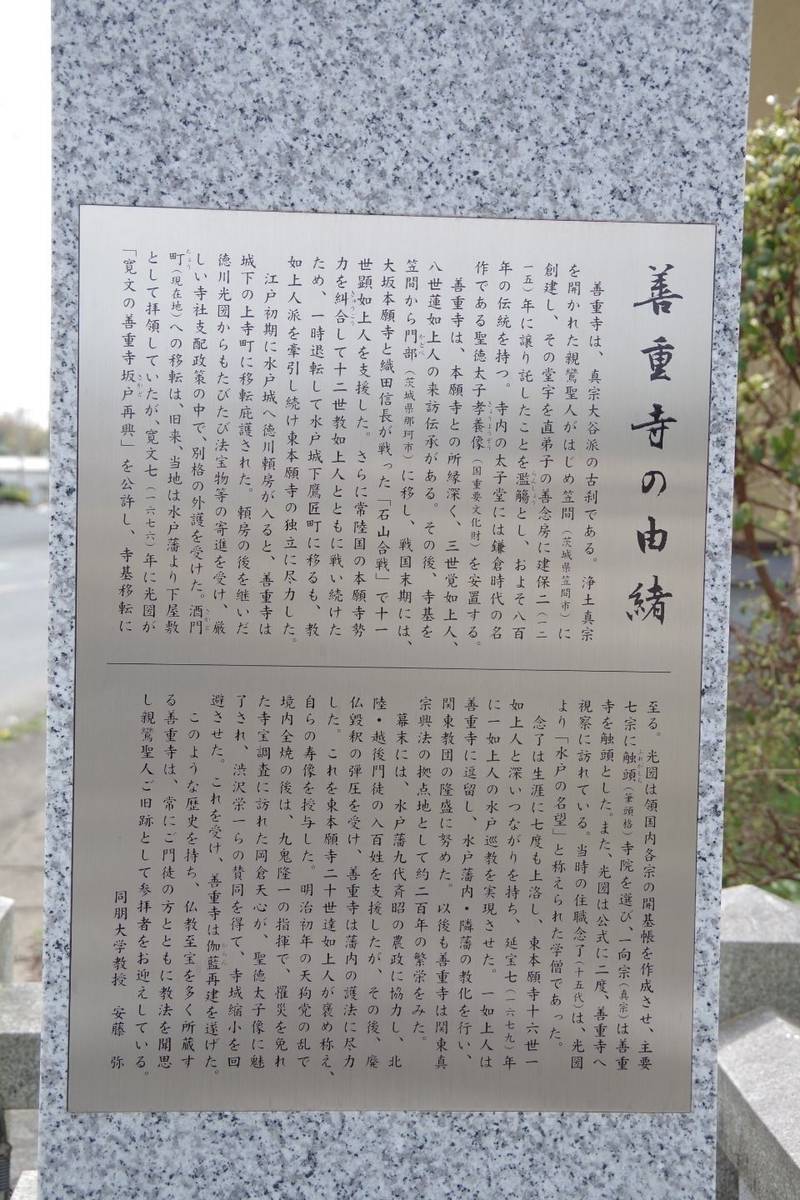 善重寺の由緒
善重寺は、真宗大谷派の古刹である。浄土真宗
を開かれた親鸞聖人がはじめ笠間（茨城県笠間市）に
創建し、その堂宇を直弟子の善念房に建保二（一二
一五）年に譲り託したことを濫觴とし、およそ八百
年の伝統を持つ。寺内の太子堂には鎌倉時代の名
作である聖徳太子孝養像（国重要文化財）を安置する。
善重寺は、本願寺との所縁深く、三世覚如上人、
八世蓮如上人の来訪伝承がある。その後、寺基を
笠間から門部（茨城県那珂市）に移し、戦国末期には、
大坂本願寺と織田信長が戦った「石山合戦」で十一
世顕如上人を支援した。さらに常陸国の本願寺勢
力を糾合して十二世教如上人とともに戦い続けた
ため、一時退転して水戸城下鷹匠町に移るも、教
如上人派を牽引し続け東本願寺の独立に尽力した。
江戸初期に水戸城へ徳川頼房が入ると、善重寺は
城下の上寺町に移転庇護された。頼房の後を継いだ
徳川光圀からもたびたび法宝物等の寄進を受け、厳
しい寺社支配政策の中で、別格の外護を受けた。酒門
町（現在地）への移転は、旧来、当地は水戸藩より下屋敷
として拝領していたが、寛文七（一六七六）年に光圀が
「寛文の善重寺坂戸再興」を公許し、寺基移転に
至る。光圀は領国内各宗の開基帳を作成させ、主要
七宗に触頭（筆頭格）寺院を選び、一向宗（真宗）は善重
寺を触頭とした。また、光圀は公式に二度、善重寺へ
視察に訪れている。当時の住職念了（十五代）は、光圀
より「水戸の名望」と称えられた学僧であった。
念了は生涯に七度も上洛し、東本願寺十六世一
如上人と深いつながりを持ち、延宝七（一六七九）年
に一如上人の水戸巡教を実現させた。一如上人は
善重寺に逗留し、水戸藩内・隣藩の教化を行い、
関東教団の隆盛に努めた。以後も善重寺は関東真
宗興法の拠点地として約二百年の繁栄をみた。
幕末には、水戸藩九代斉昭の農政に協力し、北
陸・越後門徒の入百姓を支援したが、その後、廃
仏毀釈の弾圧を受け、善重寺は藩内の護法に尽力
した。これを東本願寺二十世達如上人が褒め称え、
自らの寿像を授与した。明治初年の天狗党の乱で
境内全焼の後は、九鬼隆一の指揮で、罹災を免れ
た寺宝調査に訪れた岡倉天心が、聖徳太子像に魅
了され、渋沢栄一らの賛同を得て、寺域縮小を回
避させた。これを受け、善重寺は伽藍再建を遂げた。
このような歴史を持ち、仏教至宝を多く所蔵す
る善重寺は、常にご門徒の方とともに教法を聞思
し親鸞聖人ご旧跡として参拝者をお迎えしている。
同朋大学教授　安藤　弥